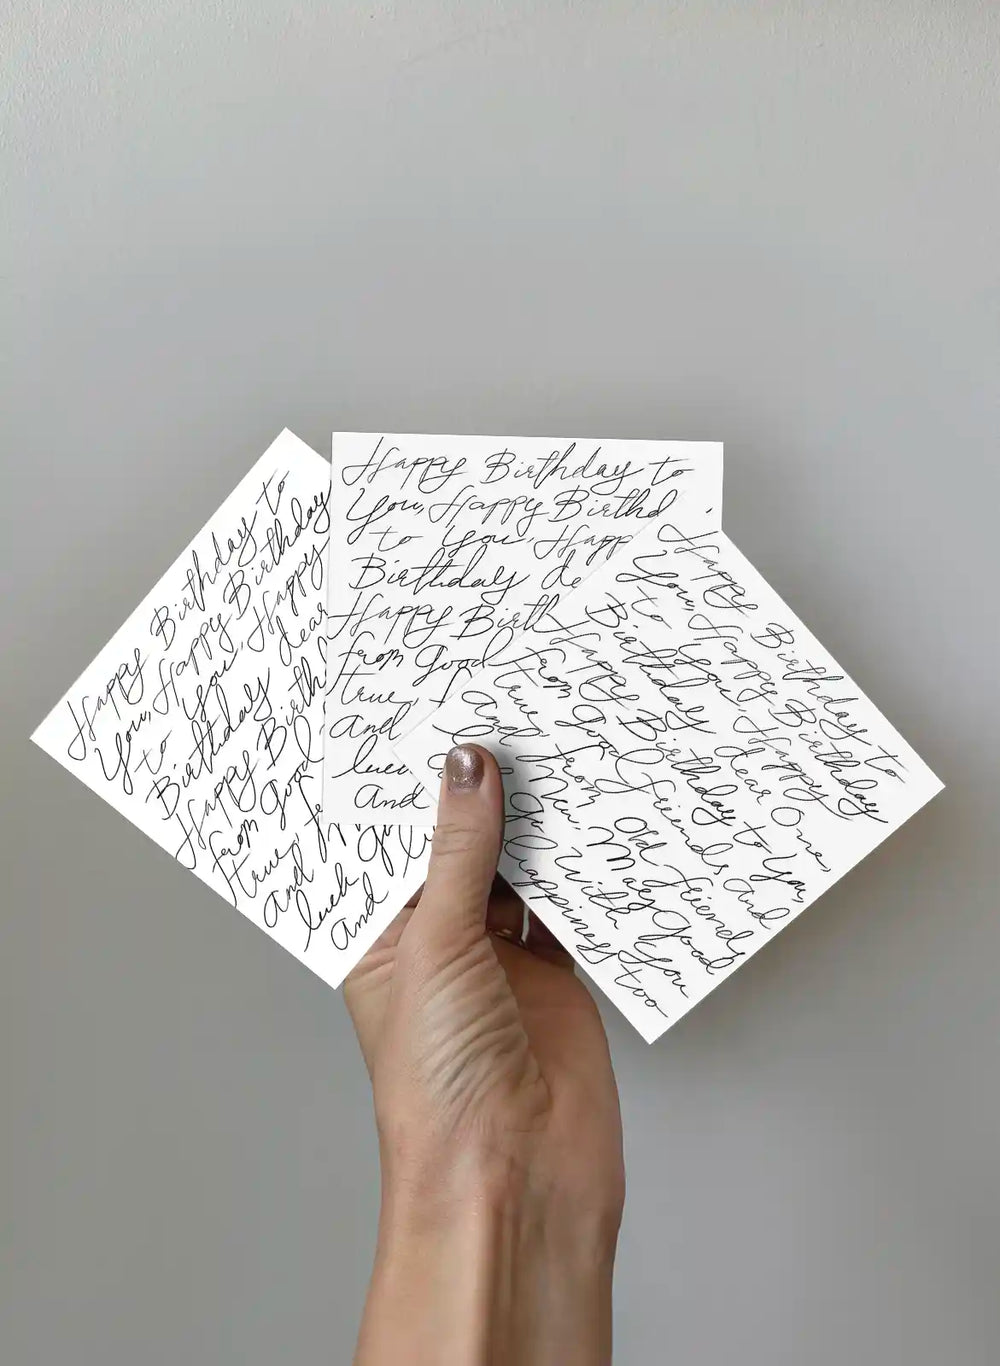 Happy Birthday to
You, Happy Birthday
to You, Happy
Birthday dear
Happy Birth
from Good
true,
And
luck
And
Happy Birthday to
You, Happy Birthd
to You, Happ
Birthday de
Happy Birth
from Good
true,
And
luck
And
Happy Birthday to
You, Happy Birthday
to You, Happy
Birthday dear One,
Happy Birthday to You,
from Good friends and
true, from Old friends
And New, May Good
Go With You
Happiness too